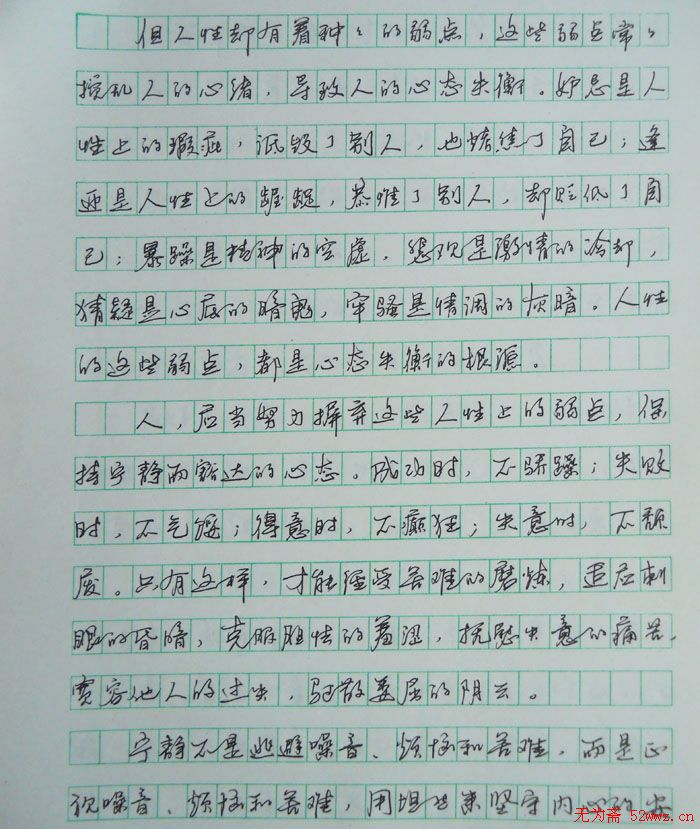 但人性却有着种々的弱点，这些弱点常々
搅乱人的心绪，导致人的心态失衡。妒忌是人
性上的瑕疵，诋毁了别人，也烤焦了自己；逢
迎是人性上的龌龊，恭维了别人，却贬低了自
己；暴躁是精神的空虚，悲观是激情的冷却，
猜疑是心底的暗鬼，牢骚是情调的灰暗。人性
的这些弱点，都是心态失衡的根源。
人，应当努力摒弃这些人性上的弱点，保
持宁静而豁达的心态。成功时，不骄躁；失败
时，不气馁；得意时，不癫狂；失意时，不颓
废。只有这样，才能经受苦难的磨炼，适应刺
眼的昏暗，克服胆怯的羞涩，抚慰失意的痛苦，
宽容他人的过失，驱散委屈的阴云。
宁静不是逃避噪音、烦恼和苦难，而是正
视噪音、烦恼和苦难，用坦然来坚守内心的安
尤为斋 52wwz.cn